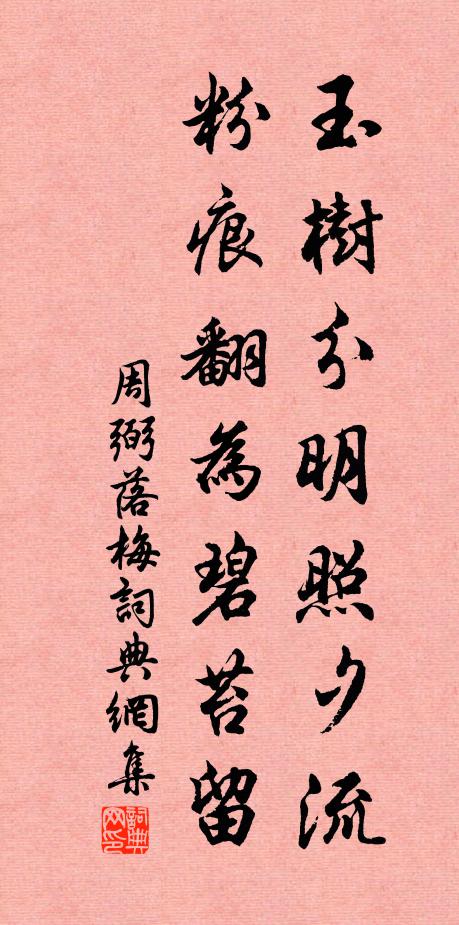 玉樹分明照夕流
粉痕翻為碧苔留
周弼落梅詞典網集
詞典网印